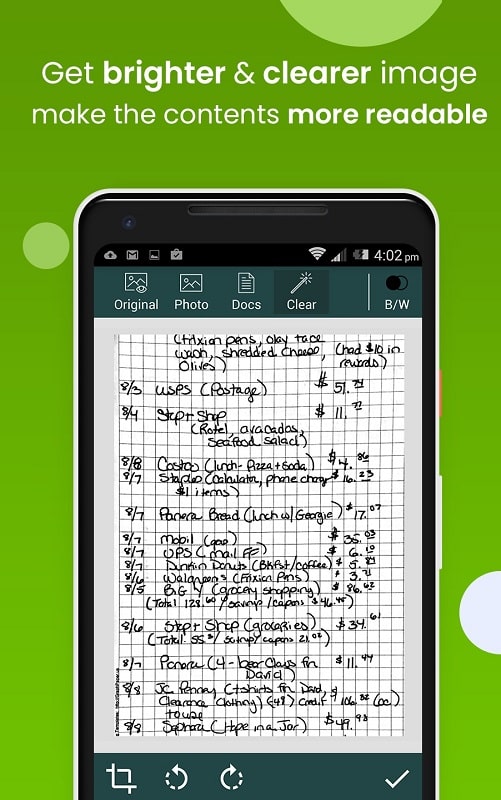 Get brighter & clearer image
make the contents more readable
4:02 pm
Original Photo Docs Clear B/W
(Frixion pens, olay face
wash, shredded cheese, (had $10 in
Olives) rewards)
8/3 USPS (Postage) $ 51.74
8/4 Stop + Shop $ 11.77
(Rotel, avacados,
seafood salad)
8/8 Costco (lunch - Pizza + Soda) $ 4.86
8/7 Staples (Calculator, phone charg $ 16.23
$1 items)
8/7 Panera Bread (lunch w/ Georgie) $ 17.07
8/7 Mobil (gas) $ 35.03
8/7 UPS (mail FF) $ 6.10
8/7 Dunkin Donuts (BKfst/coffee) $ 5.84
8/6 Walgreens (Frixion Pens) $ 3.71
8/5 Big Y (grocery shopping) $ 86.62
(Total 128.60 / savings / coupons $46.45)
8/6 Stop + Shop (groceries) $ 34.61
(Total: 55 / savings / coupons 21.02)
8/7 Panera (4 - bear claws for $ 11.44
David)
8/8 JC Penney (t-shirts for David, $
Clearance Clothing) (48) credit 106.32 (cc)
8/8 Sephora (Hope in a Jar) $ 49.98